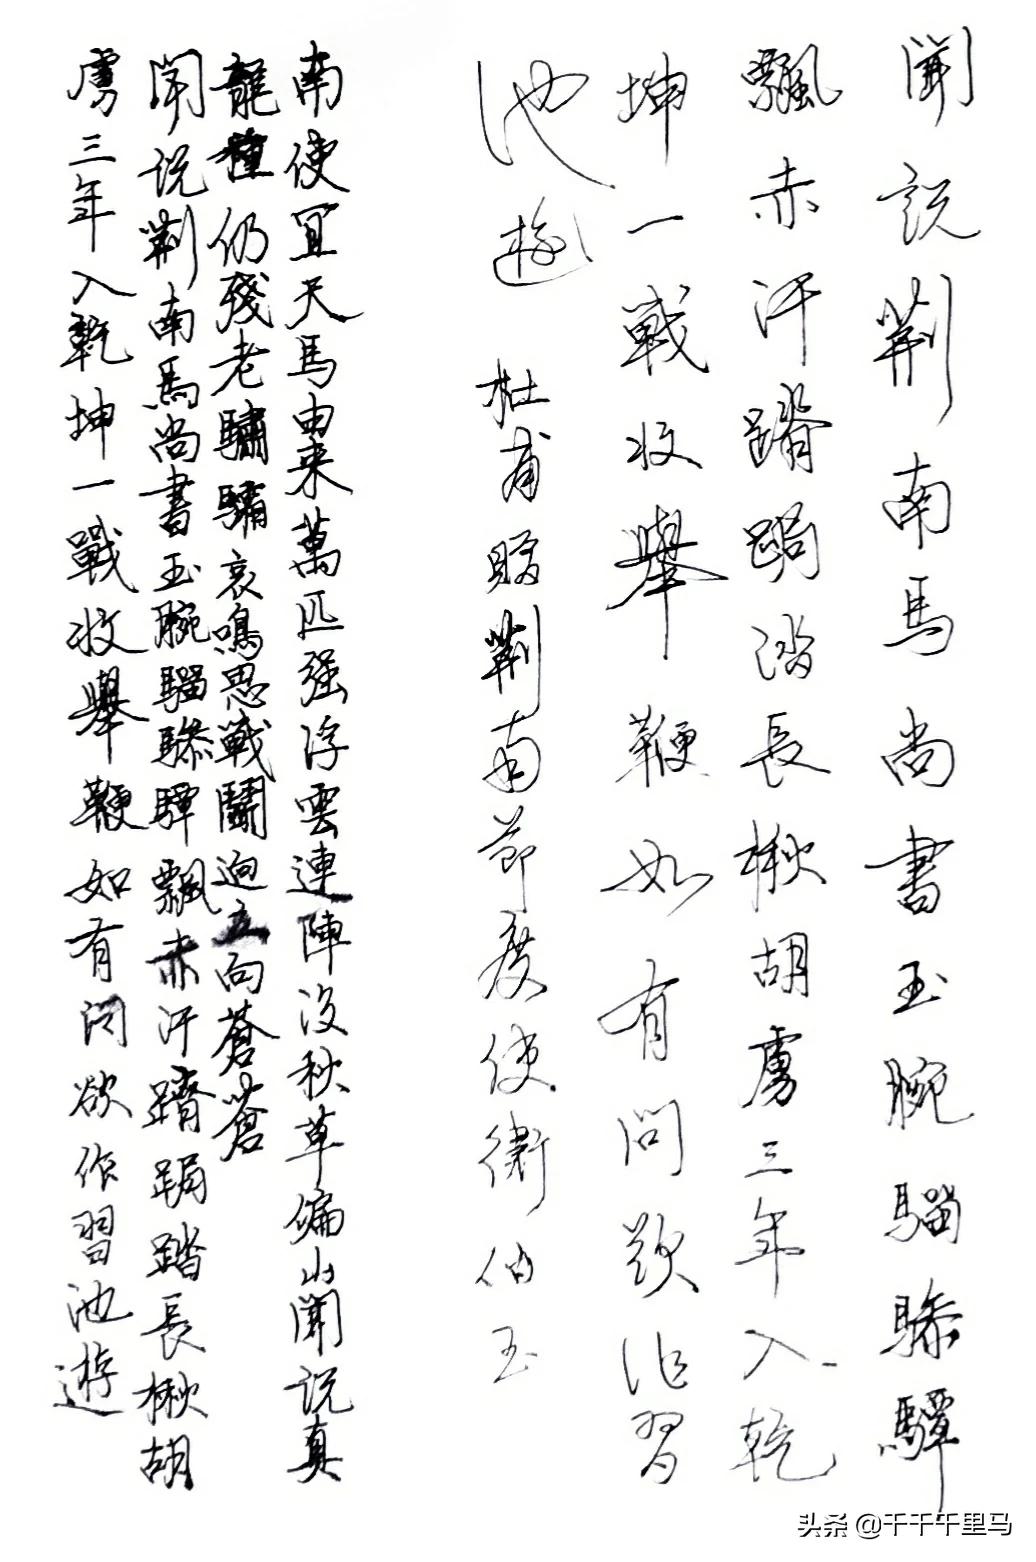 聞説荆南馬尚書玉腕騮驂驔
飄赤汗蹐跼踏長楸胡虜三年入乾
坤一戰收舉鞭如有問欲作習
池遊
杜甫贈荆南節度使衛伯玉
南使宜天馬由来萬匹强浮雲連陣没秋草徧山聞说真
龍種仍殘老驌驦哀鳴思戰鬭迥立向蒼蒼
聞说荆南馬尚書玉腕騮驂驔飄赤汗蹐跼踏長楸胡
虜三年入乾坤一戰收舉鞭如有问欲作習池遊
头条 @千千千里马